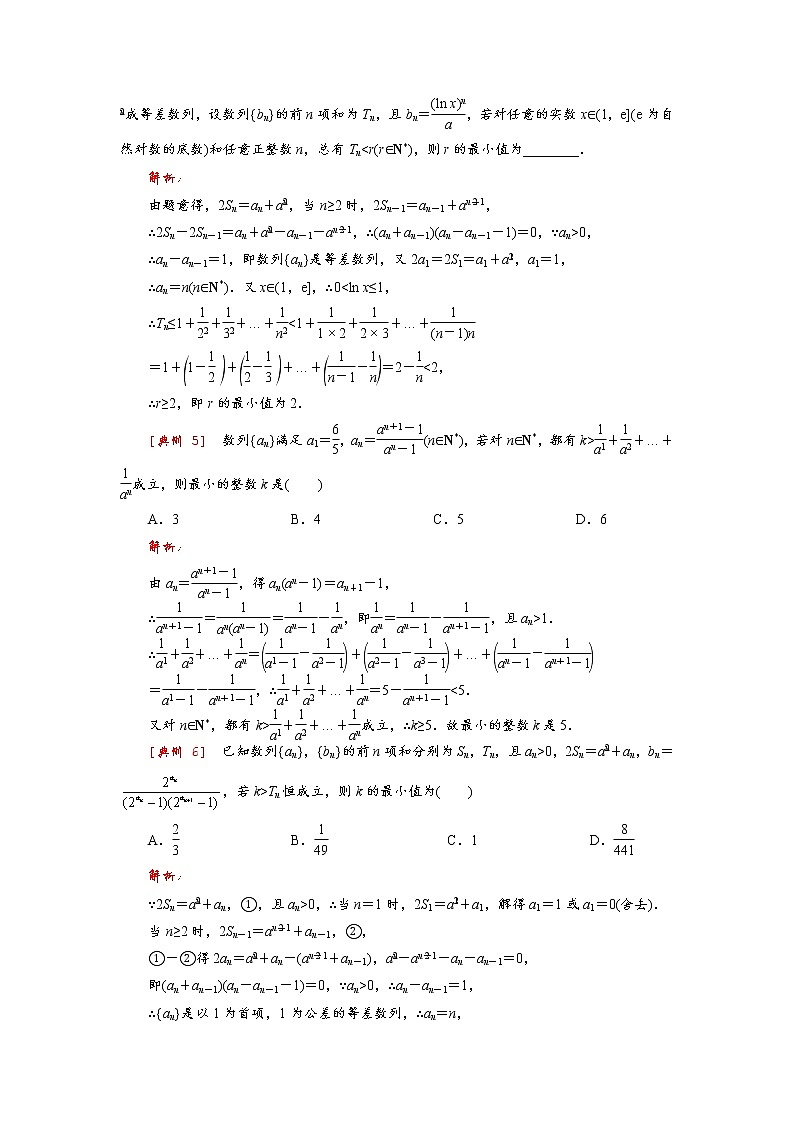 成等差数列，设数列{bₙ}的前 n 项和为 Tₙ，且 bₙ＝(ln x)ⁿ/a，若对任意的实数 x∈(1，e](e 为自
然对数的底数)和任意正整数 n，总有 Tₙ<r(r∈N*)，则 r 的最小值为________．
解析：
由题意得，2Sₙ＝aₙ＋a，当 n≥2 时，2Sₙ₋₁＝aₙ₋₁＋a，
∴2Sₙ－2Sₙ₋₁＝aₙ＋a－aₙ₋₁－a，∴(aₙ＋aₙ₋₁)(aₙ－aₙ₋₁－1)＝0，∵aₙ>0，
∴aₙ－aₙ₋₁＝1，即数列{aₙ}是等差数列，又 2a₁＝2S₁＝a₁＋a，a₁＝1，
∴aₙ＝n(n∈N*)．又 x∈(1，e]，∴0<ln x≤1，
∴Tₙ≤1＋1/2²＋1/3²＋…＋1/n²<1＋1/(1×2)＋1/(2×3)＋…＋1/((n－1)n)
＝1＋(1－1/2)＋(1/2－1/3)＋…＋(1/(n－1)－1/n)＝2－1/n<2，
∴r≥2，即 r 的最小值为 2．
[典例 5] 数列{aₙ}满足 a₁＝6/5，aₙ＝(aⁿ⁺¹－1)/(aⁿ－1)(n∈N*)，若对 n∈N*，都有 k>1/a¹＋1/a²＋…＋
1/aⁿ成立，则最小的整数 k 是( )
A．3 B．4 C．5 D．6
解析：
由 aₙ＝(aⁿ⁺¹－1)/(aⁿ－1)，得 aₙ(aⁿ－1)＝aₙ₊₁－1，
∴1/(aⁿ⁺¹－1)＝1/(aⁿ(aⁿ－1))＝1/(aⁿ－1)－1/aⁿ，即1/aⁿ＝1/(aⁿ－1)－1/(aⁿ⁺¹－1)，且 aₙ>1．
∴1/a¹＋1/a²＋…＋1/aⁿ＝(1/(a¹－1)－1/(a²－1))＋(1/(a²－1)－1/(a³－1))＋…＋(1/(aⁿ－1)－1/(aⁿ⁺¹－1))
＝1/(a¹－1)－1/(aⁿ⁺¹－1)，∴1/a¹＋1/a²＋…＋1/aⁿ＝5－1/(aⁿ⁺¹－1)<5．
又对 n∈N*，都有 k>1/a¹＋1/a²＋…＋1/aⁿ成立，∴k≥5．故最小的整数 k 是 5．
[典例 6] 已知数列{aₙ}，{bₙ}的前 n 项和分别为 Sₙ，Tₙ，且 aₙ>0，2Sₙ＝a＋aₙ，bₙ＝
2^(aₙ)/((2^(aₙ)－1)(2^(aₙ₊₁)－1))，若 k>Tₙ恒成立，则 k 的最小值为( )
A．2/3 B．1/49 C．1 D．8/441
解析：
∵2Sₙ＝a＋aₙ，①，且 aₙ>0，∴当 n＝1 时，2S₁＝a＋a₁，解得 a₁＝1 或 a₁＝0(舍去)．
当 n≥2 时，2Sₙ₋₁＝a＋aₙ₋₁，②，
①－②得 2aₙ＝a＋aₙ－(a＋aₙ₋₁)，a－a－aₙ－aₙ₋₁＝0，
即(aₙ＋aₙ₋₁)(aₙ－aₙ₋₁－1)＝0，∵aₙ>0，∴aₙ－aₙ₋₁＝1，
∴{aₙ}是以 1 为首项，1 为公差的等差数列，∴aₙ＝n，